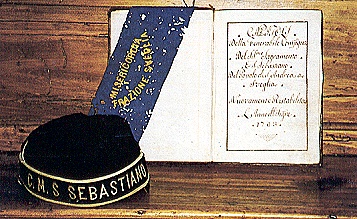 MISERICORDIA
FRAZIONE SVEGLIA
C.M.S SEBASTIANO
CAPITOLI
Della Venerabile Compagnia
Del SS.mo Sagramento
E S. Sebastiano
S. Andrea a
Sveglia
Nuovamente Ristabilita
L'Anno